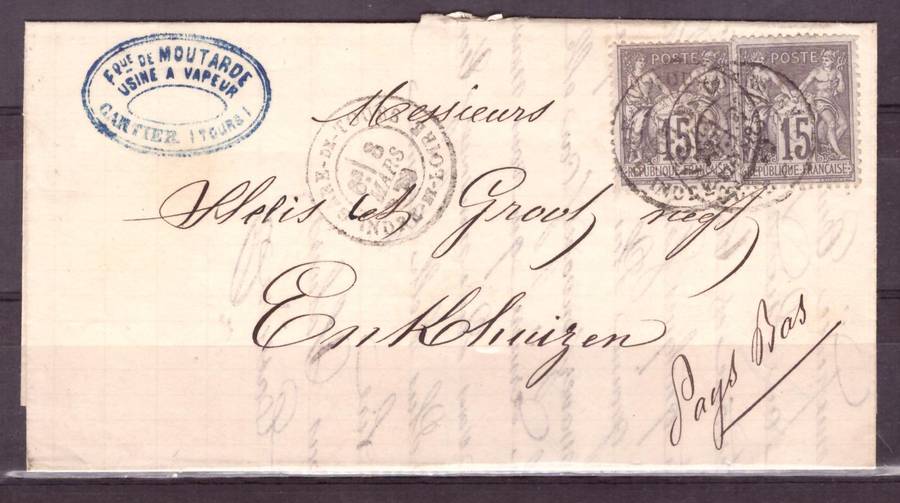 FQUE DE MOUTARDE
USINE A VAPEUR
CARTIER (TOURS)
POSTE
15
RÉPUBLIQUE FRANÇAISE
POSTE
15
RÉPUBLIQUE FRANÇAISE
Messieurs
8
MARS
INDRE-ET-LOIRE
Sluis et Groot negt
Enkhuizen
Pays Bas